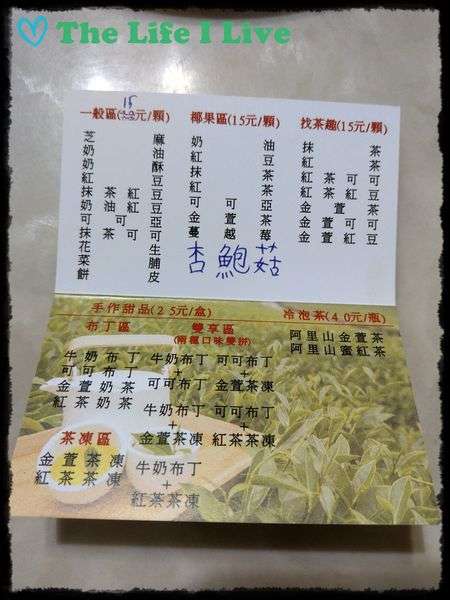 The Life I Live
15
一般區(12元/顆)
芝麻
奶油
奶酥
紅豆
抹茶紅豆
奶油紅豆
可可亞
抹茶可可
花生
菜脯
餅皮
椰果區(15元/顆)
奶油
紅豆
抹茶
紅茶
可可亞
金萱茶
蔓越莓
杏鮑菇
找茶趣(15元/顆)
抹茶
紅茶
紅茶可可
紅茶紅豆
金萱茶
金萱可可
金萱紅豆
手作甜品(25元/盒)
布丁區
牛奶布丁
可可布丁
金萱奶茶
紅茶奶茶
茶凍區
金萱茶凍
紅茶茶凍
雙享區
(兩種口味雙拼)
牛奶布丁 可可布丁
+ +
可可布丁 金萱茶凍
牛奶布丁 可可布丁
+ +
金萱茶凍 紅茶茶凍
牛奶布丁
+
紅茶茶凍
冷泡茶(40元/瓶)
阿里山金萱茶
阿里山蜜紅茶